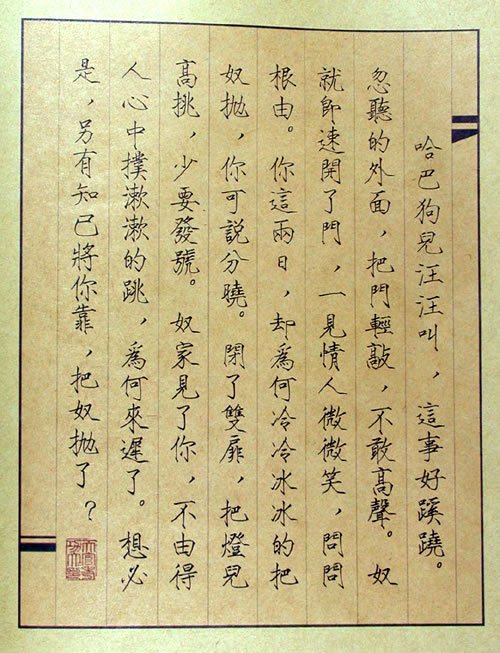 哈巴狗兒汪汪叫，這事好蹊蹺。
忽聽的外面，把門輕敲，不敢高聲。奴
就即速開了門，一見情人微微笑，問問
根由。你這兩日，却為何冷冷冰冰的把
奴拋，你可説分曉。閉了雙扉，把燈兒
高挑，少要發號。奴家見了你，不由得
人心中撲漱漱的跳，為何來遲了。想必
是，另有知已將你靠，把奴拋了？